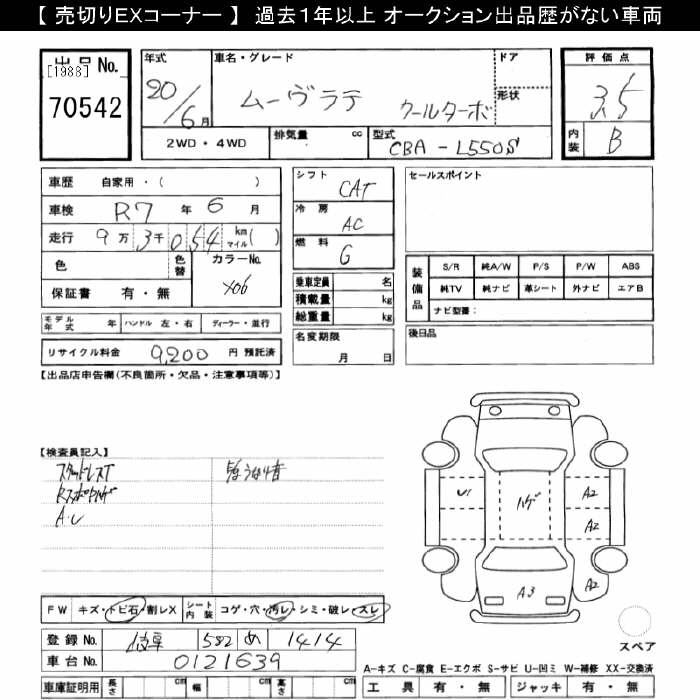 【 売切りEXコーナー 】 過去1年以上 オークション出品歴がない車両
出品 No.
[1988]
70542
年式
20/6月
車名・グレード
ムーヴラテ クールターボ
ドア
形状
2WD・4WD
排気量 cc
型式
CBA-L550S
評価点
3.5
内装
B
車歴 自家用・( )
車検 R7年6月
走行 9万3千054 km マイル( )
色
色替
カラーNo.
X06
保証書 有・無
モデル年式 年
ハンドル 左・右
ディーラー・並行
リサイクル料金 9,200 円 預託済
シフト CAT
冷房 AC
燃料 G
乗車定員 名
積載量 kg
総重量 kg
名変期限 月 日
セールスポイント
装備品
S/R 純A/W P/S P/W ABS
純TV 純ナビ 革シート 外ナビ エアB
ナビ型番:
後日品
【出品店申告欄(不良箇所・欠品・注意事項等)】
【検査員記入】
スタッドレスT
A.U
U1
ハゲ
A2
A2
A2
A3
スペア
FW キズ・トビ石・割レX
シート内装 コゲ・穴・汚レ・シミ・破レ・スレ
登録 No. 582 め 1414
車台 No. 0121639
車庫証明用 長さ cm 幅 cm 高さ cm
A-キズ C-腐食 E-エクボ S-サビ U-凹ミ W-補修 XX-交換済
工具 有・無 ジャッキ 有・無